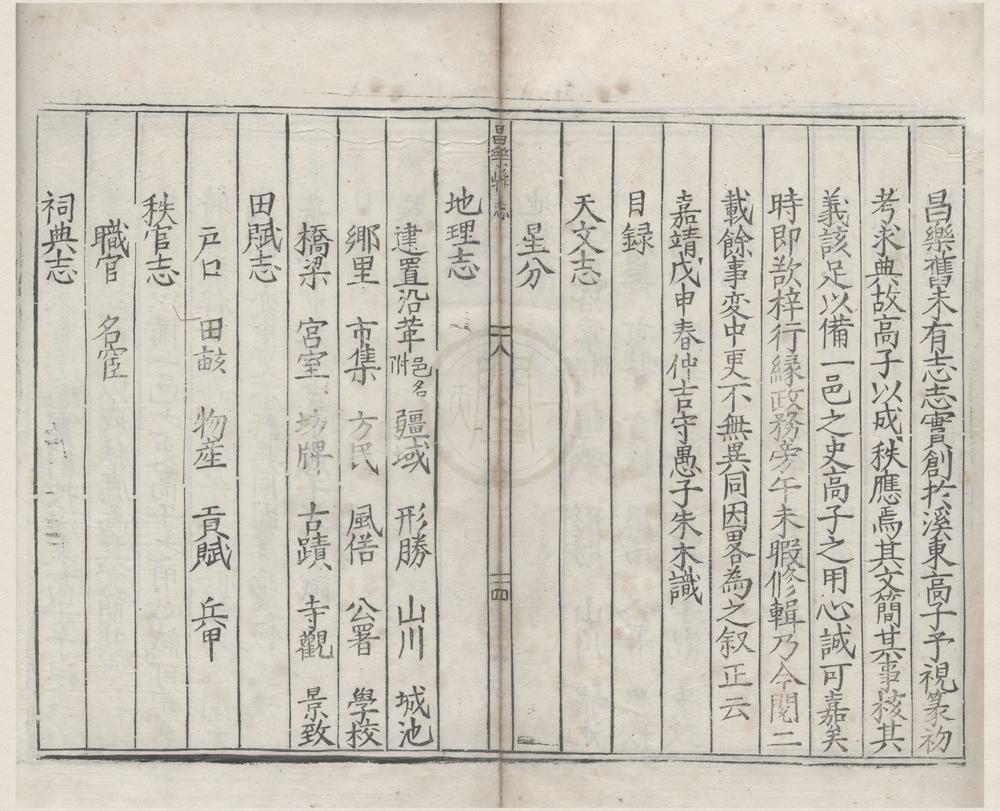 昌樂舊未有志志實創扵溪東高子予視篆初
考求典故高子以成秩應焉其文簡其事核其
義該足以備一邑之史高子之用心誠可嘉矣
時即歆梓行緣政務旁午未暇修輯乃今閱二
載餘事变中更不無異同因畧為之叙正云
嘉靖戊申春仲吉守愚子朱木識
目録
天文志
星分
昌樂縣志
二八
三四
地理志
建置沿革邑名附 疆域 形勝 山川 城池
鄉里 市集 方民 風俗 公署 學校
橋梁 宮室 坊牌 古蹟 寺觀 景致
田賦志
戸口 田畝 物産 貢賦 兵甲
秩官志
職官 名宦
祠典志